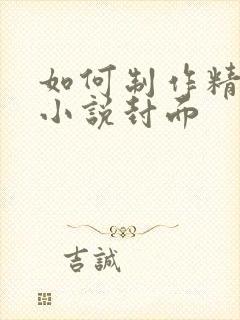 如何制作精
小説封面
吉誠